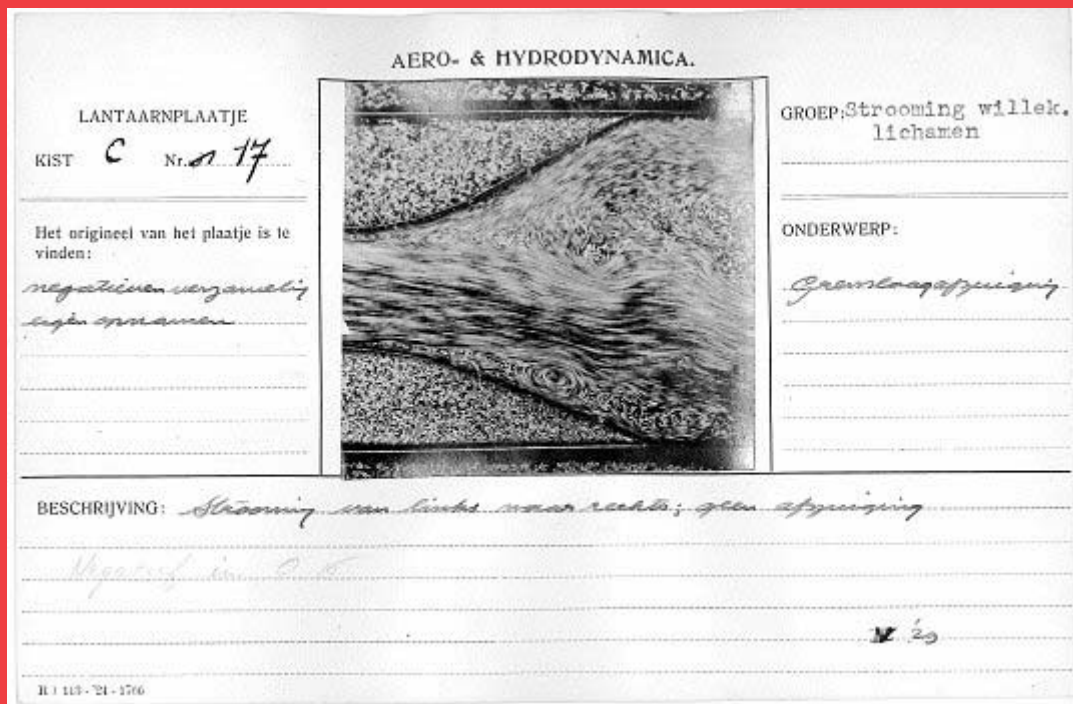 AERO- & HYDRODYNAMICA.
LANTAARNPLAATJE
KIST C Nr. 17
Het origineel van het plaatje is te
vinden:
negatieven verzameling
eigen opnamen
GROEP: Strooming willek.
lichamen
ONDERWERP:
Grenslaagafzuiging
BESCHRIJVING: Strooming van links naar rechts; geen afzuiging
Negatief in C
'29